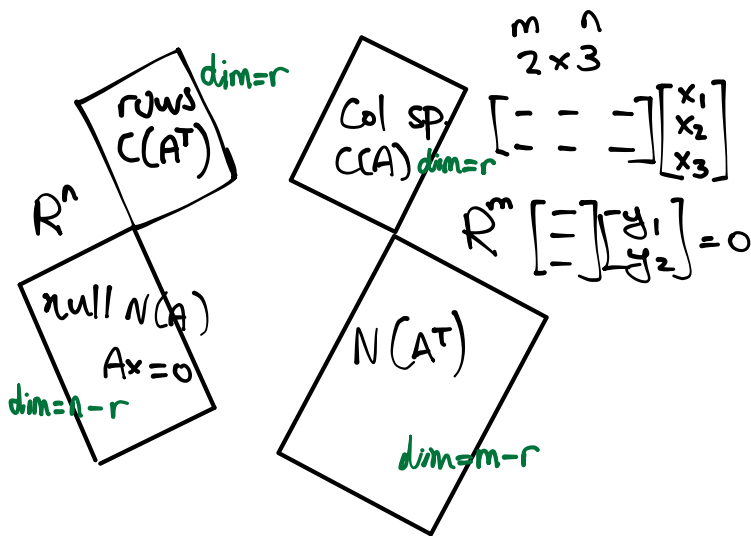 rows
C(Aᵀ)
dim=r
Rⁿ
null N(A)
Ax=0
dim=n-r
Col sp.
C(A)
dim=r
Rᵐ
N(Aᵀ)
dim=m-r
m n
2×3
[- - -
- - -] [x₁
x₂
x₃]
[- -
- -
- -] [y₁
y₂] = 0